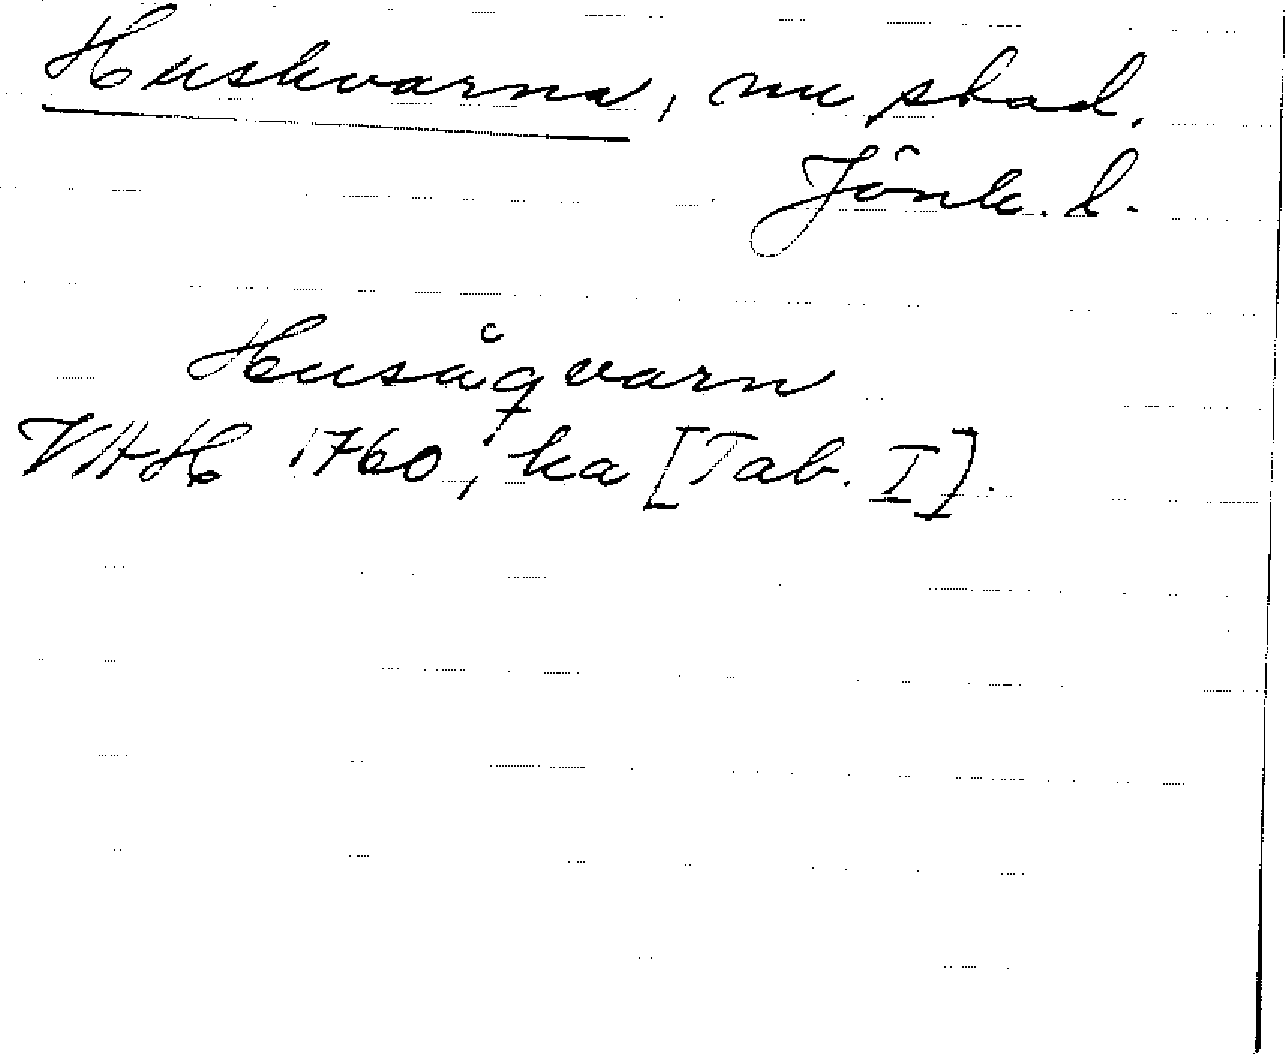 Huskvarna, nu stad.
Jönk. l.
Husåqvarn
VAH 1760, ka [Tab. I].